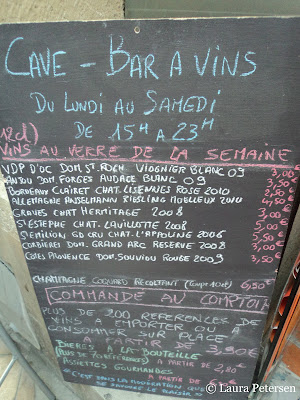 CAVE - BAR A VINS
DU LUNDI AU SAMEDI
DE 15H A 23H
VINS AU VERRE DE LA SEMAINE
VDP D'OC DOM ST. ROCH VIOGNIER BLANC 09 3,00
ANJOU DOM FORGES AUDACE BLANC 09
BORDEAUX CLAIRET CHAT. LISENNES ROSE 2010
ALLEMAGNE ANSELMANN RIESLING MOELLEUX 2010
GRAVES CHAT HERMITAGE 2008
ST ESTEPHE CHAT. LAVILLOTTE 2008
ST EMILION GD CRU CHAT. L'APPOLINE 2006
CORBIERES DOM. GRAND ARC RESERVE 2008
CTES PROVENCE DOM. SOUVIOU ROUGE 2009 3,50
CHAMPAGNE COQUARD RECOLTANT 6,50€
COMMANDE AU COMPTOIR
PLUS DE 200 REFERENCES DE
VINS A EMPORTER OU A
CONSOMMER SUR PLACE
A PARTIR DE 3,90€
BIERES A LA BOUTEILLE
A PARTIR DE 2,80
ASSIETTES GOURMANDES
A PARTIR DE
© Laura Petersen